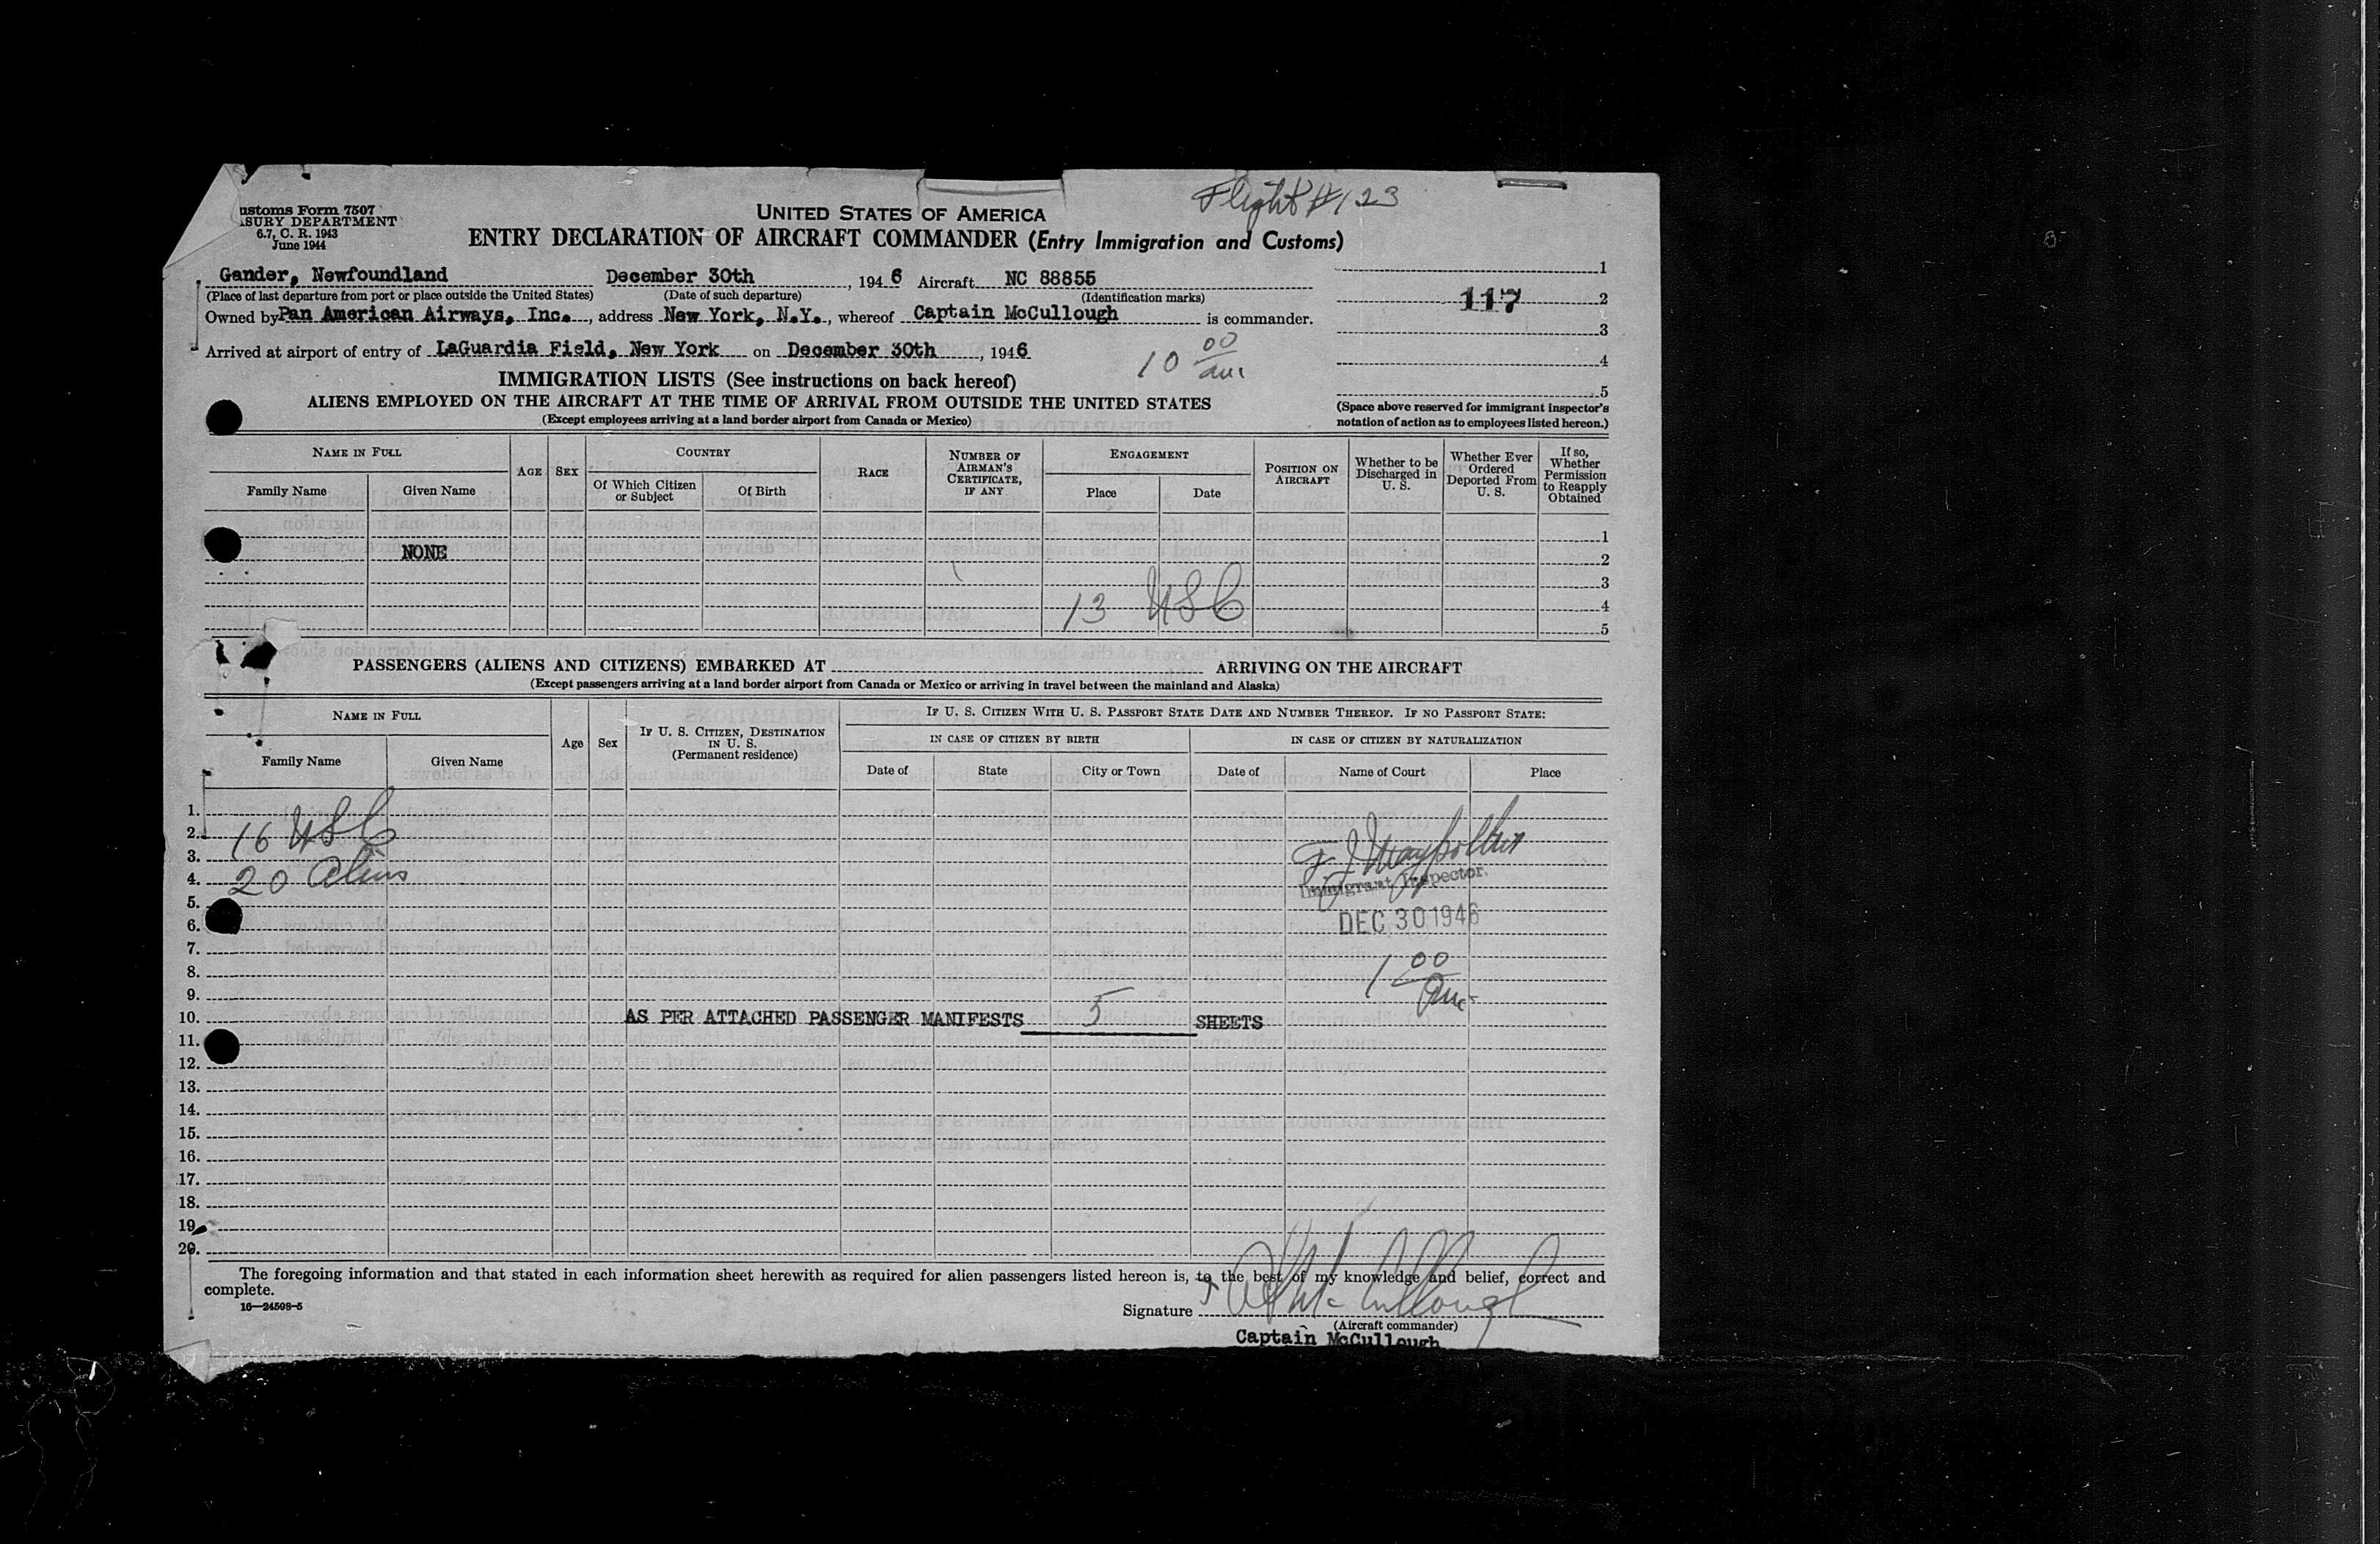 Flight # 123
ustoms Form 7507
ASURY DEPARTMENT
6.7, C. R. 1943
June 1944
UNITED STATES OF AMERICA
ENTRY DECLARATION OF AIRCRAFT COMMANDER (Entry Immigration and Customs)
Gander, Newfoundland December 30th, 1946 Aircraft NC 88855
(Place of last departure from port or place outside the United States) (Date of such departure) (Identification marks)
Owned by Pan American Airways, Inc., address New York, N.Y., whereof Captain McCullough is commander.
Arrived at airport of entry of LaGuardia Field, New York on December 30th, 1946
10 00 am
1
117 2
3
4
5
(Space above reserved for immigrant inspector's
notation of action as to employees listed hereon.)
IMMIGRATION LISTS (See instructions on back hereof)
ALIENS EMPLOYED ON THE AIRCRAFT AT THE TIME OF ARRIVAL FROM OUTSIDE THE UNITED STATES
(Except employees arriving at a land border airport from Canada or Mexico)
NAME IN FULL
Family Name Given Name
AGE SEX
COUNTRY
Of Which Citizen or Subject Of Birth
RACE
NUMBER OF AIRMAN'S CERTIFICATE, IF ANY
ENGAGEMENT
Place Date
POSITION ON AIRCRAFT
Whether to be Discharged in U. S.
Whether Ever Ordered Deported From U. S.
If so, Whether Permission to Reapply Obtained
1
NONE 2
3
13 USC 4
5
PASSENGERS (ALIENS AND CITIZENS) EMBARKED AT ARRIVING ON THE AIRCRAFT
(Except passengers arriving at a land border airport from Canada or Mexico or arriving in travel between the mainland and Alaska)
NAME IN FULL
Family Name Given Name
Age Sex
IF U. S. CITIZEN, DESTINATION IN U. S. (Permanent residence)
IF U. S. CITIZEN WITH U. S. PASSPORT STATE DATE AND NUMBER THEREOF. IF NO PASSPORT STATE:
IN CASE OF CITIZEN BY BIRTH IN CASE OF CITIZEN BY NATURALIZATION
Date of State City or Town Date of Name of Court Place
1.
2. 16 USC
3.
4. 20 Aliens
Immigrant Inspector.
5.
6. DEC 30 1946
7.
8. 1 00
9. am
10. AS PER ATTACHED PASSENGER MANIFESTS 5 SHEETS
11.
12.
13.
14.
15.
16.
17.
18.
19.
20.
The foregoing information and that stated in each information sheet herewith as required for alien passengers listed hereon is, to the best of my knowledge and belief, correct and
complete.
16—24508-5
Signature
(Aircraft commander)
Captain McCullough